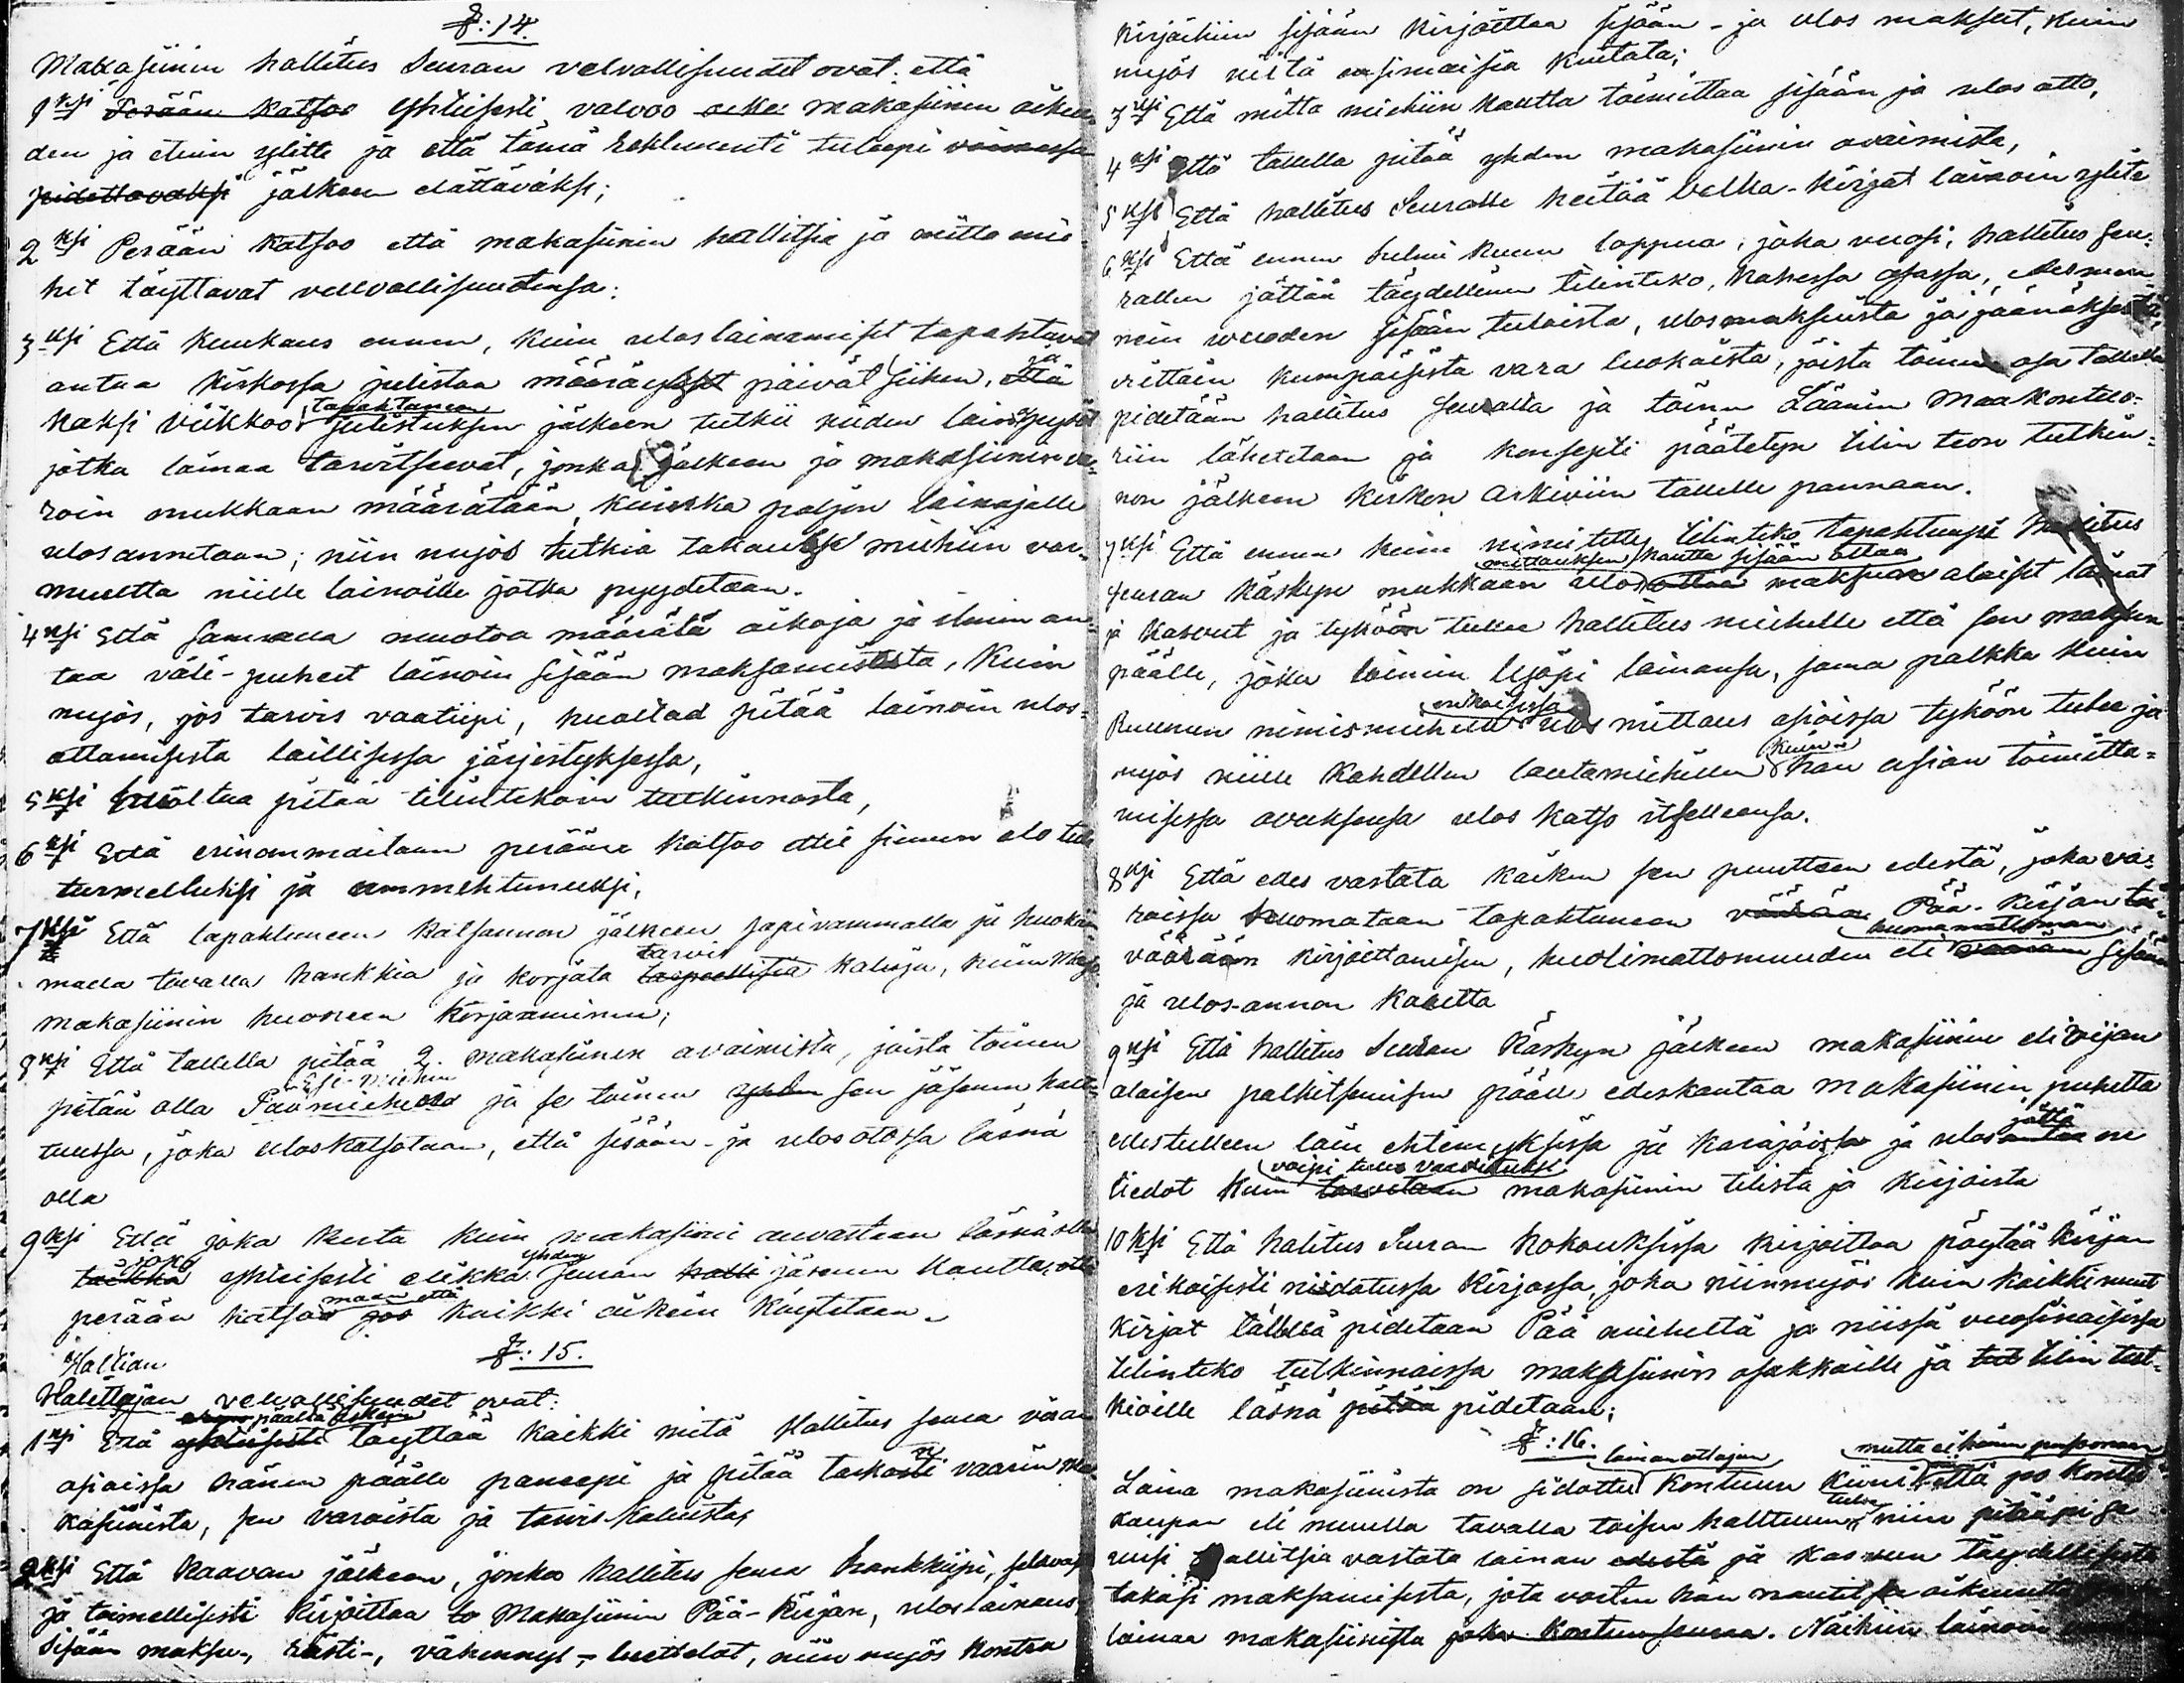 §: 14.
Makasiinin hallitus Seuran velvallisuudet ovat: että
1ksi Perään katsoo yhteisesti valvoo oike makasiinin oikeu
den ja etuin ylitte ja että tämä reklementi tuleepi voimassa
pidettäväksi jälkeen elättäväksi;
2ksi Perään katsoo että makasiinin hallitsia ja mitta mie-
het täyttävät velvallisuutensa:
3ksi Että kuukaus ennen, kuin uloslainamiset tapahtuvat
antaa kirkossa julistaa määrätyt päivät siihen, että ja
kaksi viikkoo tapahtuneen julistuksen jälkeen tutkii niiden
jotka lainaa tarvitsevat, jonka jälkeen ja makasiinin va-
roin mukkaan määrätään, kuinka paljon lainajalle
ulosannetaan; niin myös tutkia takaus miehiin var-
muutta niille lainoille jotka pyydetään.
4ksi Että samalla muotoa määrätä aikoja ja ilmi an-
taa väli-puheet lainoin sisään maksamisesta, kuin
myös, jos tarvis vaatiipi, huollad pitää lainoin ulos-
ottamisesta laillisessa järjestyksessä,
5ksi Huoltaa pitää tilintekoin tutkinnosta,
6ksi Että erinommaitain perään katsoo ettei siemen elo tule
turmelluksi ja ummehtuneeksi,
7ksi Että tapahtuneen katsannon jälkeen sopivammalla ja huokia
malla tavalla hankkia ja korjata tarpeellisia tarvis kaluja, kuin myös
makasiinin huoneen korjaaminen;
8ksi Että tallella pitää 2. makasiinin avaimista, joista toinen
pitää olla Päämiehellä Esi-miehen ja se toinen yhden sen jäsenen hal-
tuussa, joka uloskatsotaan, että sisään- ja ulosotossa läsnä
olla
9ksi Että joka kerta kuin makasiini auvastaan läsnä olla
taikka joko yhteisesti elikkä yhden Seuran halli jäsenen kautta,
perään katsoa jos maan että kaikki oikein käytetään.
§: 15.
Haltian
Halittajan velvallisuudet ovat:
1ksi Että yhteisesti päältä täyttää kaikki mitä Hallitus seura
asioissa hänen päälle paneepi ja pitää tarkasti vaarin ma
kasiinista, sen varoista ja tarvis-kaluista,
2ksi Että kaavan jälkeen, jonka hallitus seura hankkiipi, selvästi
ja toimellisesti kirjoittaa to Makasiinin Pää-kirjan, uloslainaus,
Sisään maksu-, rästi-, vähennys-luettelot, niin myös kontra
kirjoihin sisään kirjoittaa sisään- ja ulos maksut, kuin
myös niitä ensimäisiä kuitata;
3ksi Että mitta miehiin kautta toimittaa sisään ja ulos otto,
4ksi Että tallella pitää yhden makasiinin avaimista,
5ksi Että hallitus Seuralle heitää velka-kirjat lainoin ylite
6ksi Että ennen helmi kuun loppua, joka vuosi, hallitus seu-
rallen jättää täydellinen tilinteko, kahessa osassa, edesmen-
nein vuoden sisään tuloista, ulosmaksuista ja jäänöksistä,
erittäin kumpaisista vara luokaista, joista toinen osa tallella
pidetään hallitus seuralta ja toinen Läänin Maakontto-
riin lähetetään ja konsepti päätetyn tilin teon tutkin-
non jälkeen kirkon arkiviin tallelle pannaan.
7ksi Että ennen kuin nimitetty tilinteko tapahtuupi hallitus
seuran käskyn mukkaan ulos ottaa mittauksen kautta sisään ottaa maksun alaiset lainat
ja kasvut ja tyköön tulee hallitus miehelle että sen maksun
päälle, joka toimin lisäpi lainansa, sama palkka kuin
Ruunun nimismiehelle erikoisissa ulos mittaus asioissa tyköön tulee ja
myös niille kahdellen lautamiehillen kuin hän asian toimitta-
misessa avuksensa ulos katso itsellensä.
8ksi Että edes vastata kaiken sen puutteen edestä, joka va-
roissa huomataan tapahtuneen väärän Pää-kirjan tai
väärään kirjoittamisen, huolimattomuuden eli väärän huomamattoman sisään
ja ulos-annon kautta
9ksi Että hallitus Seuran käskyn jälkeen makasiinin eli
alaisen palkitsemisen päälle edeskantaa makasiinin, puhetta
edestulleen lain ehtimyksissä ja käräjöissä ja ulos antaa jättä ne
tiedot kuin tarvitaan voipi tulla vaadituksi makasiinin tilistä ja kirjoista
10ksi Että halitus Seuran kokouksissa kirjoittaa pöytää kirjan
erikoisesti niidatussa kirjassa, joka niinmyös kuin kaikki muut
kirjat tällellä pidetään Pää mieheltä ja niissä vuosinaisissa
tilinteko tutkinnoissa makasiinin osakkaille ja tut tilin tut-
kioille läsnä pitää pidetään;
§: 16.
Laina makasiinista on sidottu lainanottajan kontuun kiini mutta ei hänen persoonaan että jos kontu
kaupan eli muulla tavalla toisen halttuun tulee, niin pitääpi se
uusi hallitsia vastata lainan edestä ja kasvun täydellisestä
takasi maksamisesta, jota vasten hän nautitsee oikeuutta
lainaa makasiinista joka kontun seuraa. Näihiin lainoin